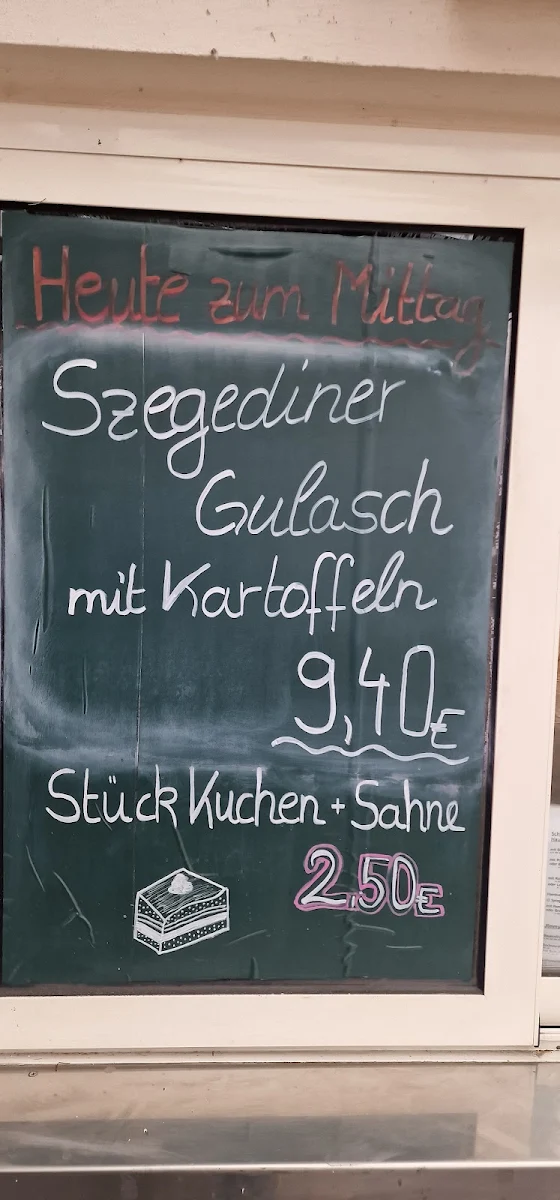 Heute zum Mittag
Szegediner
Gulasch
mit Kartoffeln
9,40€
Stück Kuchen + Sahne
2,50€